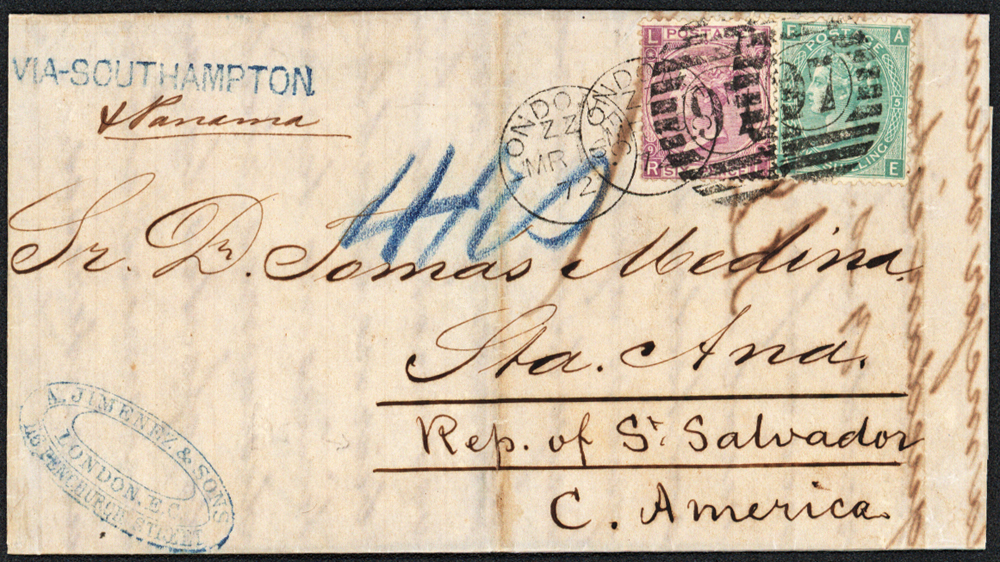 VIA-SOUTHAMPTON
& Panama
LONDON
ZZ
MR
72
L POSTAGE
R SIX PENCE L
F POSTAGE A
SHILLING E
Sr. Dn. Tomas Medina
Sta. Ana.
Rep. of St. Salvador
C. America
A. JIMENEZ & SONS
LONDON. E.C.
FENCHURCH STREET